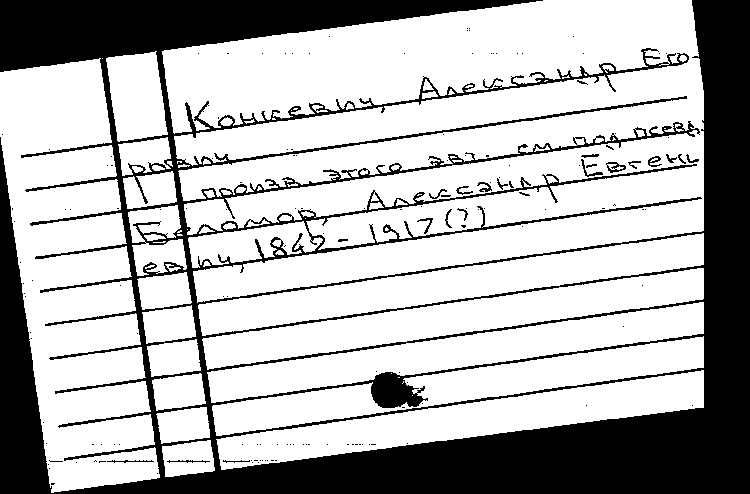 Конкевич, Александр Его-
рович
произв. этого авт. см. под псевд.
Беломор, Александр Евгень
евич, 1842 - 1917(?)